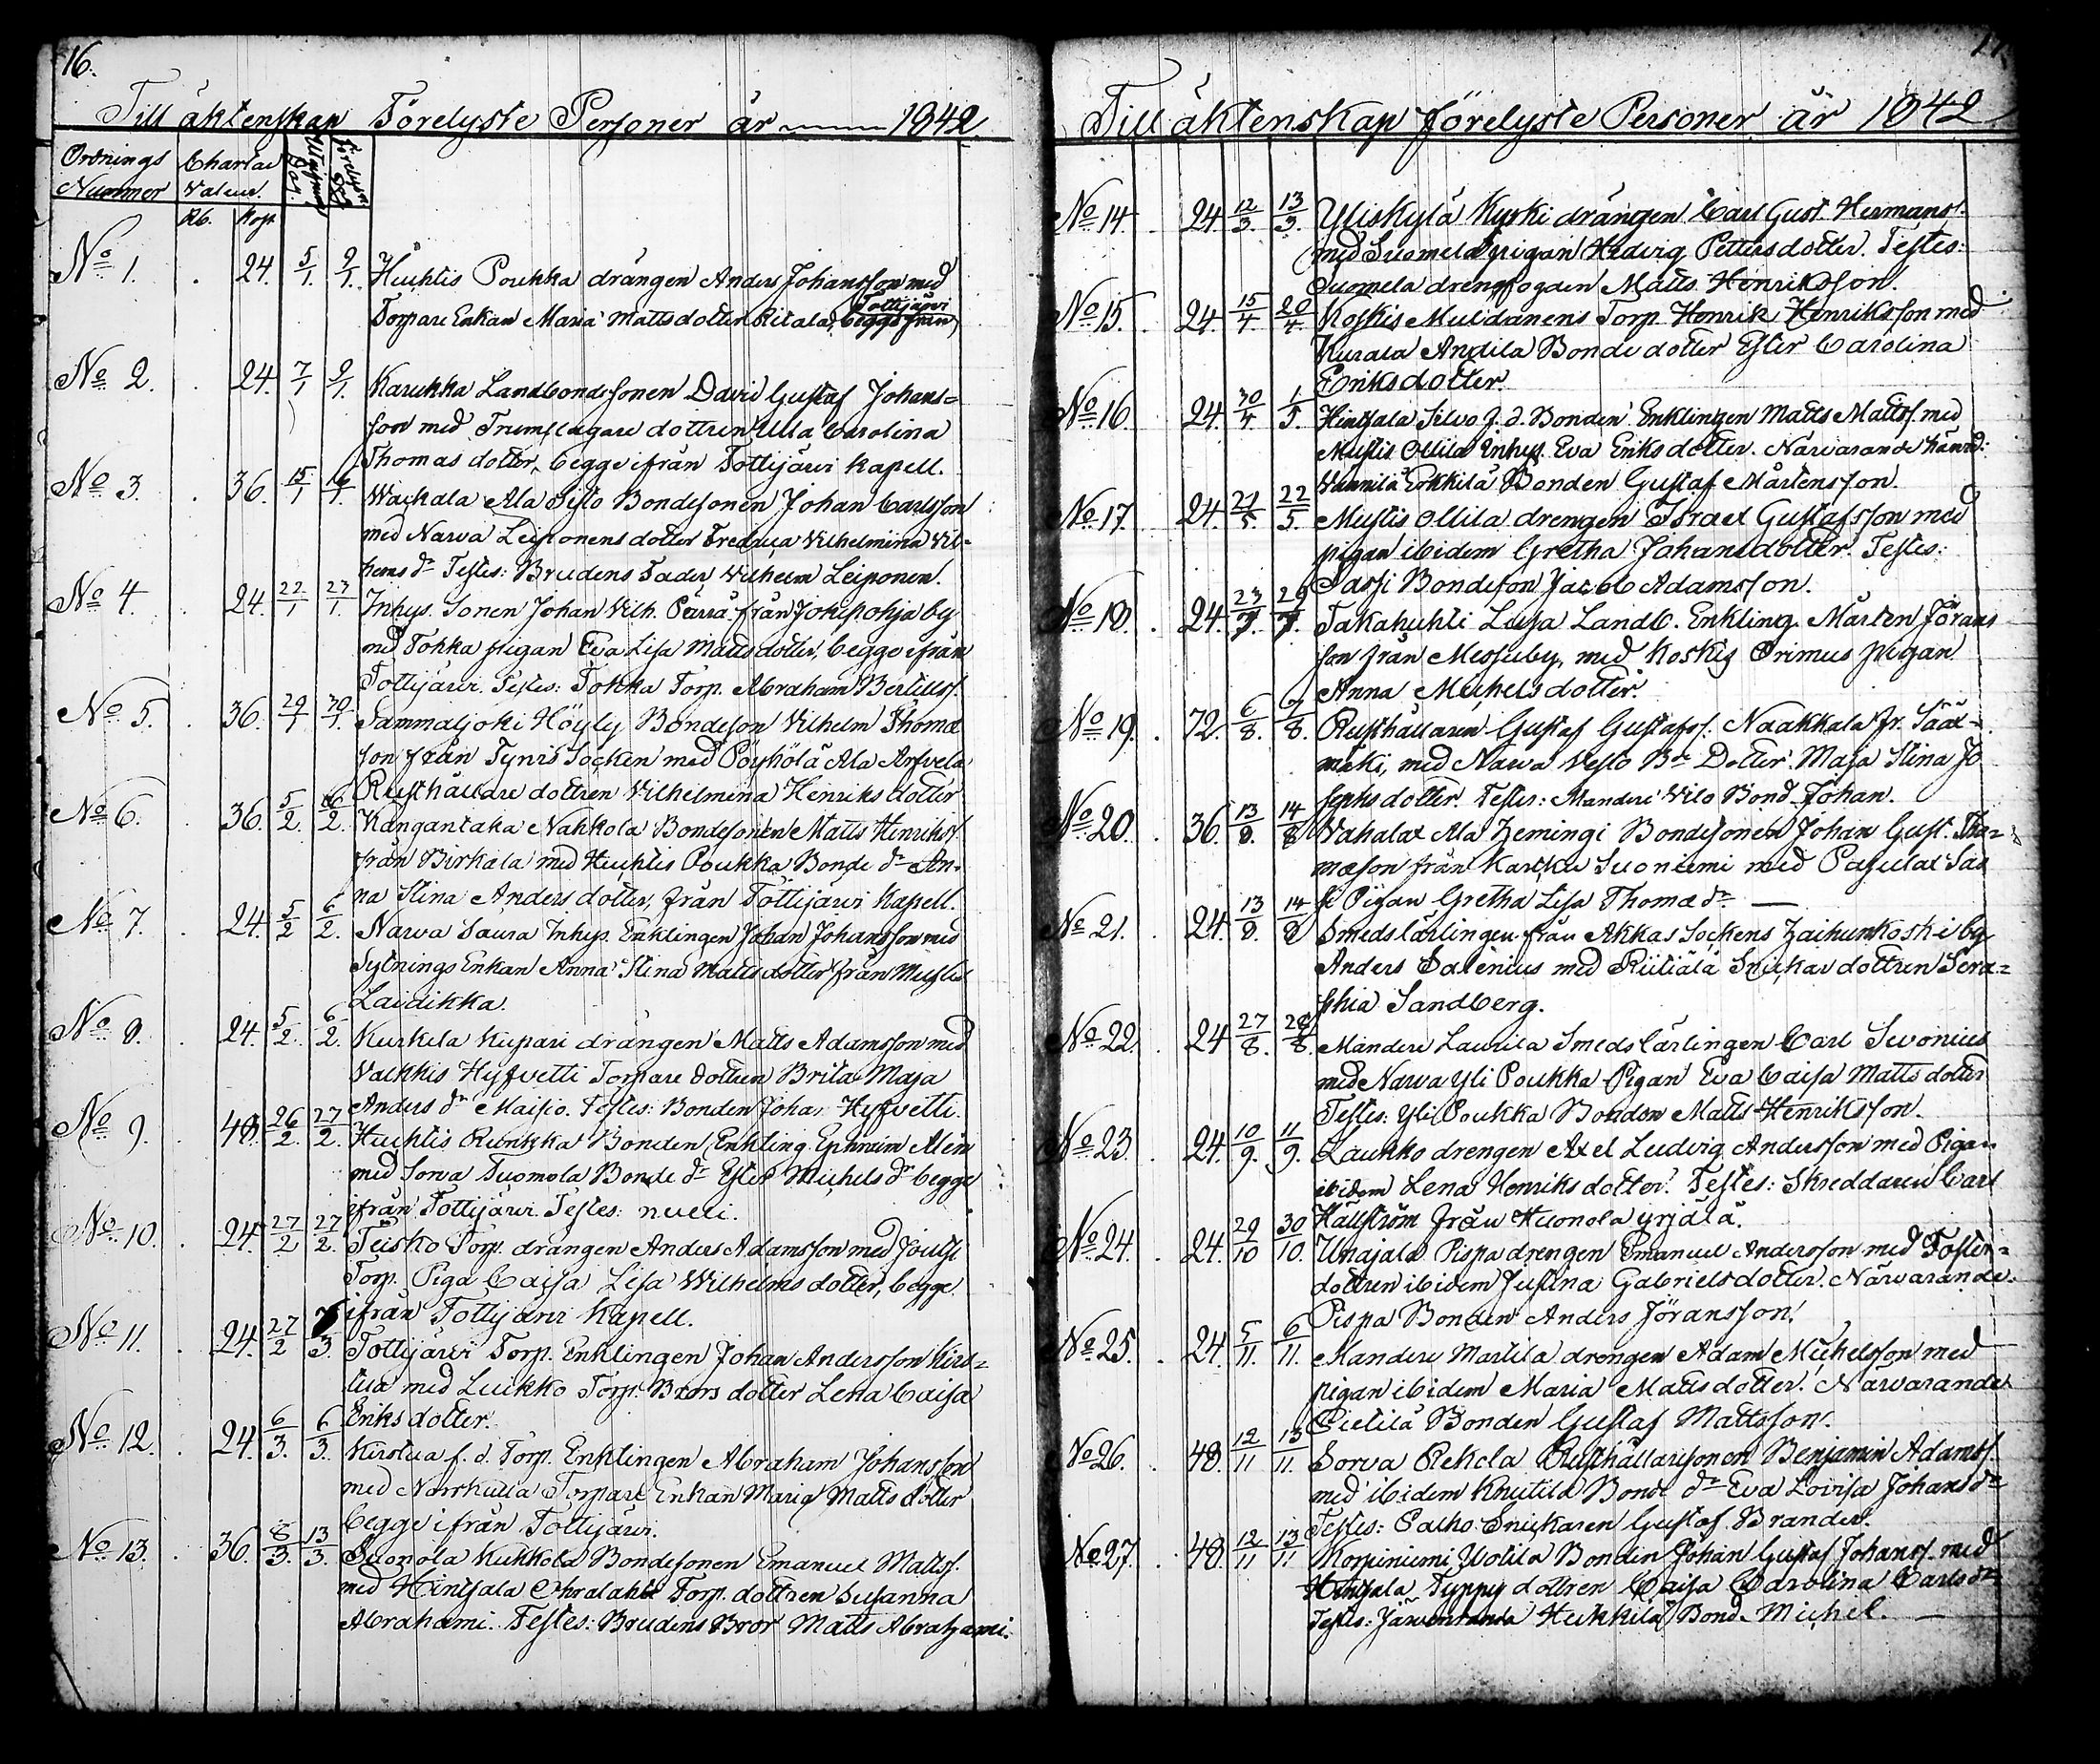 16.
Till äktenskap Förelyste Personer år 1842
Ordnings Nummer
Charta Valeur.
Rb. Kop.
No 1. 24. 5/1. 9/1. Huhtis Poukka drängen Anders Johansson med
Torpare Enkan Maria Matts dotter Ritala, begge från
Tottijärvi
No 2. 24. 7/1 9/1. Karukka Landbondesonen David Gustaf Johans=
son med Trumslagare dottren Ulla Carolina
Thomas dotter, begge ifrån Tottijärvi Kapell.
No 3. 36. 15/1 16/1. Waikala Ala Sisto Bondesonen Johan Carlsson
med Narva Leiponens dotter Fredrica Vilhelmina Vil-
hems dr Testes: Brudens Fader Vilhelm Leiponen.
No 4. 24. 22/1 23/1. Inhys. Sonen Johan Vilh. Pärrä från Jokipohja by
med Tokka pigan Eva Lisa Matts dotter, begge ifrån
Tottijärvi. Testes: Tokka Torp. Abraham Bertills.
No 5. 36. 29/1 30/1. Sammaljoki Höyly Bondeson Vilhelm Thomæ
son från Tyrvis Socken med Pöyhölä Ala Arfvela
Rusthållare dottren Vilhelmina Henriks dotter
No 6. 36. 5/2. 6/2. Kangantaka Nahkola Bondesonen Matts Henrikss.
från Birkala med Huhtis Poukka Bonde dr An-
na Stina Anders dotter, från Tottijärvi Kapell.
No 7. 24. 5/2 6/2. Narva Saura Inhys. Enklingen Johan Johansson med
Sytnings Enkan Anna Stina Matts dotter från
Laidikka.
No 8. 24. 5/2. 6/2. Kurkela Kupari drängen Matts Adamsson med
Valkkis Hyfvetti Torpare dottren Brita Maja
Anders dr Maisio. Testes: Bonden Johan Hyfvetti.
No 9. 48. 26/2. 27/2. Huhtis Runkka Bonden Enkling Ephraim Alen
med Sorva Tuomola Bonde dr Ester Michels dr begge
ifrån Tottijärvi. Testes: nulli.
No 10. 24. 27/2 27/2. Teisko Torp. drängen Anders Adamsson med
Torp. Piga Caisa Lisa Wilhelms dotter, begge
ifrån Tottijärvi Kapell.
No 11. 24. 27/2 /3. Tottijärvi Torp. Enklingen Johan Andersson Kirs=
tua med Luikko Torp. Brors dotter Lena Caisa
Eriks dotter.
No 12. 24. 6/3. 6/3. Kirstua f. d. Torp. Enklingen Abraham Johansson
med Torpare Enkan Maria Matts dotter
begge ifrån Tottijärvi.
No 13. 36. 8/3. 13/3. Suonola Kukkola Bondesonen Emanuel Matts.
med Hintsala Torp. dottren Susanna
Abrahami. Testes: Brudens Bror Matts Abrahami.
17.
Till äktenskap förelyste Personer år 1842
No 14. 24 12/3. 13/3. Yliskylä Kurki drängen Carl Gust. Hermans.
med Suomela pigan Hedvig Petters dotter. Testes:
Suomela drengfogden Matts Henriksson.
No 15. 24. 15/4. 20/4. Koskis Muldanens Torp. Henrik Henriksson med
Kurala Anttila Bonde dotter Ester Carolina
Eriks dotter.
No 16. 24. 30/4. 1/5. Hintsala Silvo f. d. Bonden Enklingen Matts Matts. med
Mustis Ollila Inhys. Eva Eriks dotter. Närvarande
Vannila Erkkilä Bonden Gustaf Mårtensson.
No 17. 24. 21/5. 22/5. Mustis Ollila drengen Israel Gustafsson med
pigan ibidem Gretha Johans dotter. Testes:
Sassi Bondeson Jacob Adamsson.
No 18. 24. 23/7. 29/7. Takahuhti Luisa Landb. Enkling Mårten Jörans
son från Messuby, med Koskis Orimus pigan
Anna Michels dotter.
No 19. 72. 6/8. 7/8. Rusthållaren Gustaf Gustafss. Naakkala fr. Sääx=
mäki, med Narva Vesto Bde Dotter Maja Stina Jo
sephs dotter. Testes: Mandere Vilo Bond. Johan.
No 20. 36. 13/8. 14/8 Vahalax Ala Hemingi Bondesonen Johan Gust. Tho=
mæson från Karkku Suoniemi med Pajulax Sas
si Pigan Gretha Lisa Thomæ dr —
No 21. 24. 13/8. 14/8 Smedslärlingen från Akkas Sockens Haihunkoski by
Anders Salenius med Riitiälä Snickar dottren Sera=
phia Sandberg.
No 22. 24 27/8. 28/8. Mandere Laurila Smedslärlingen Carl Sevonius
med Narva Yli Poukka Pigan Eva Caisa Matts dotter
Testes: Yli Poukka Bonden Matts Henriksson.
No 23. 24. 10/9. 11/9. Laukko drengen Axel Ludvig Andersson med Pigan
ibidem Lena Henriks dotter. Testes: Skreddaren Carl
Hällström från Huonola Yrjälä.
No 24. 24. 29/10 30/10. Unajala Pispa drengen Emanuel Andersson med Foster=
dottren ibidem Justina Gabriels dotter. Närvarande
Pispa Bonden Anders Jöransson.
No 25. 24. 5/11. 6/11. Mandere Martila drengen Adam Michelsson med
pigan ibidem Maria Matts dotter. Närvarande
Pietilä Bonden Gustaf Mattsson.
No 26. 48. 12/11 13/11. Sorva Rekola Rusthållaresonen Benjamin Adams.
med ibidem Knutila Bonde dr Eva Lovisa Johans dr
Testes: Palho Snickaren Gustaf Brander.
No 27. 48. 12/11 13/11 Korpiniemi Uotila Bonden Johan Gustaf Johans. med
Hintsala Typpy dottren Caisa Carolina Carls dr
Testes: Heikkilä Bond. Michel. —